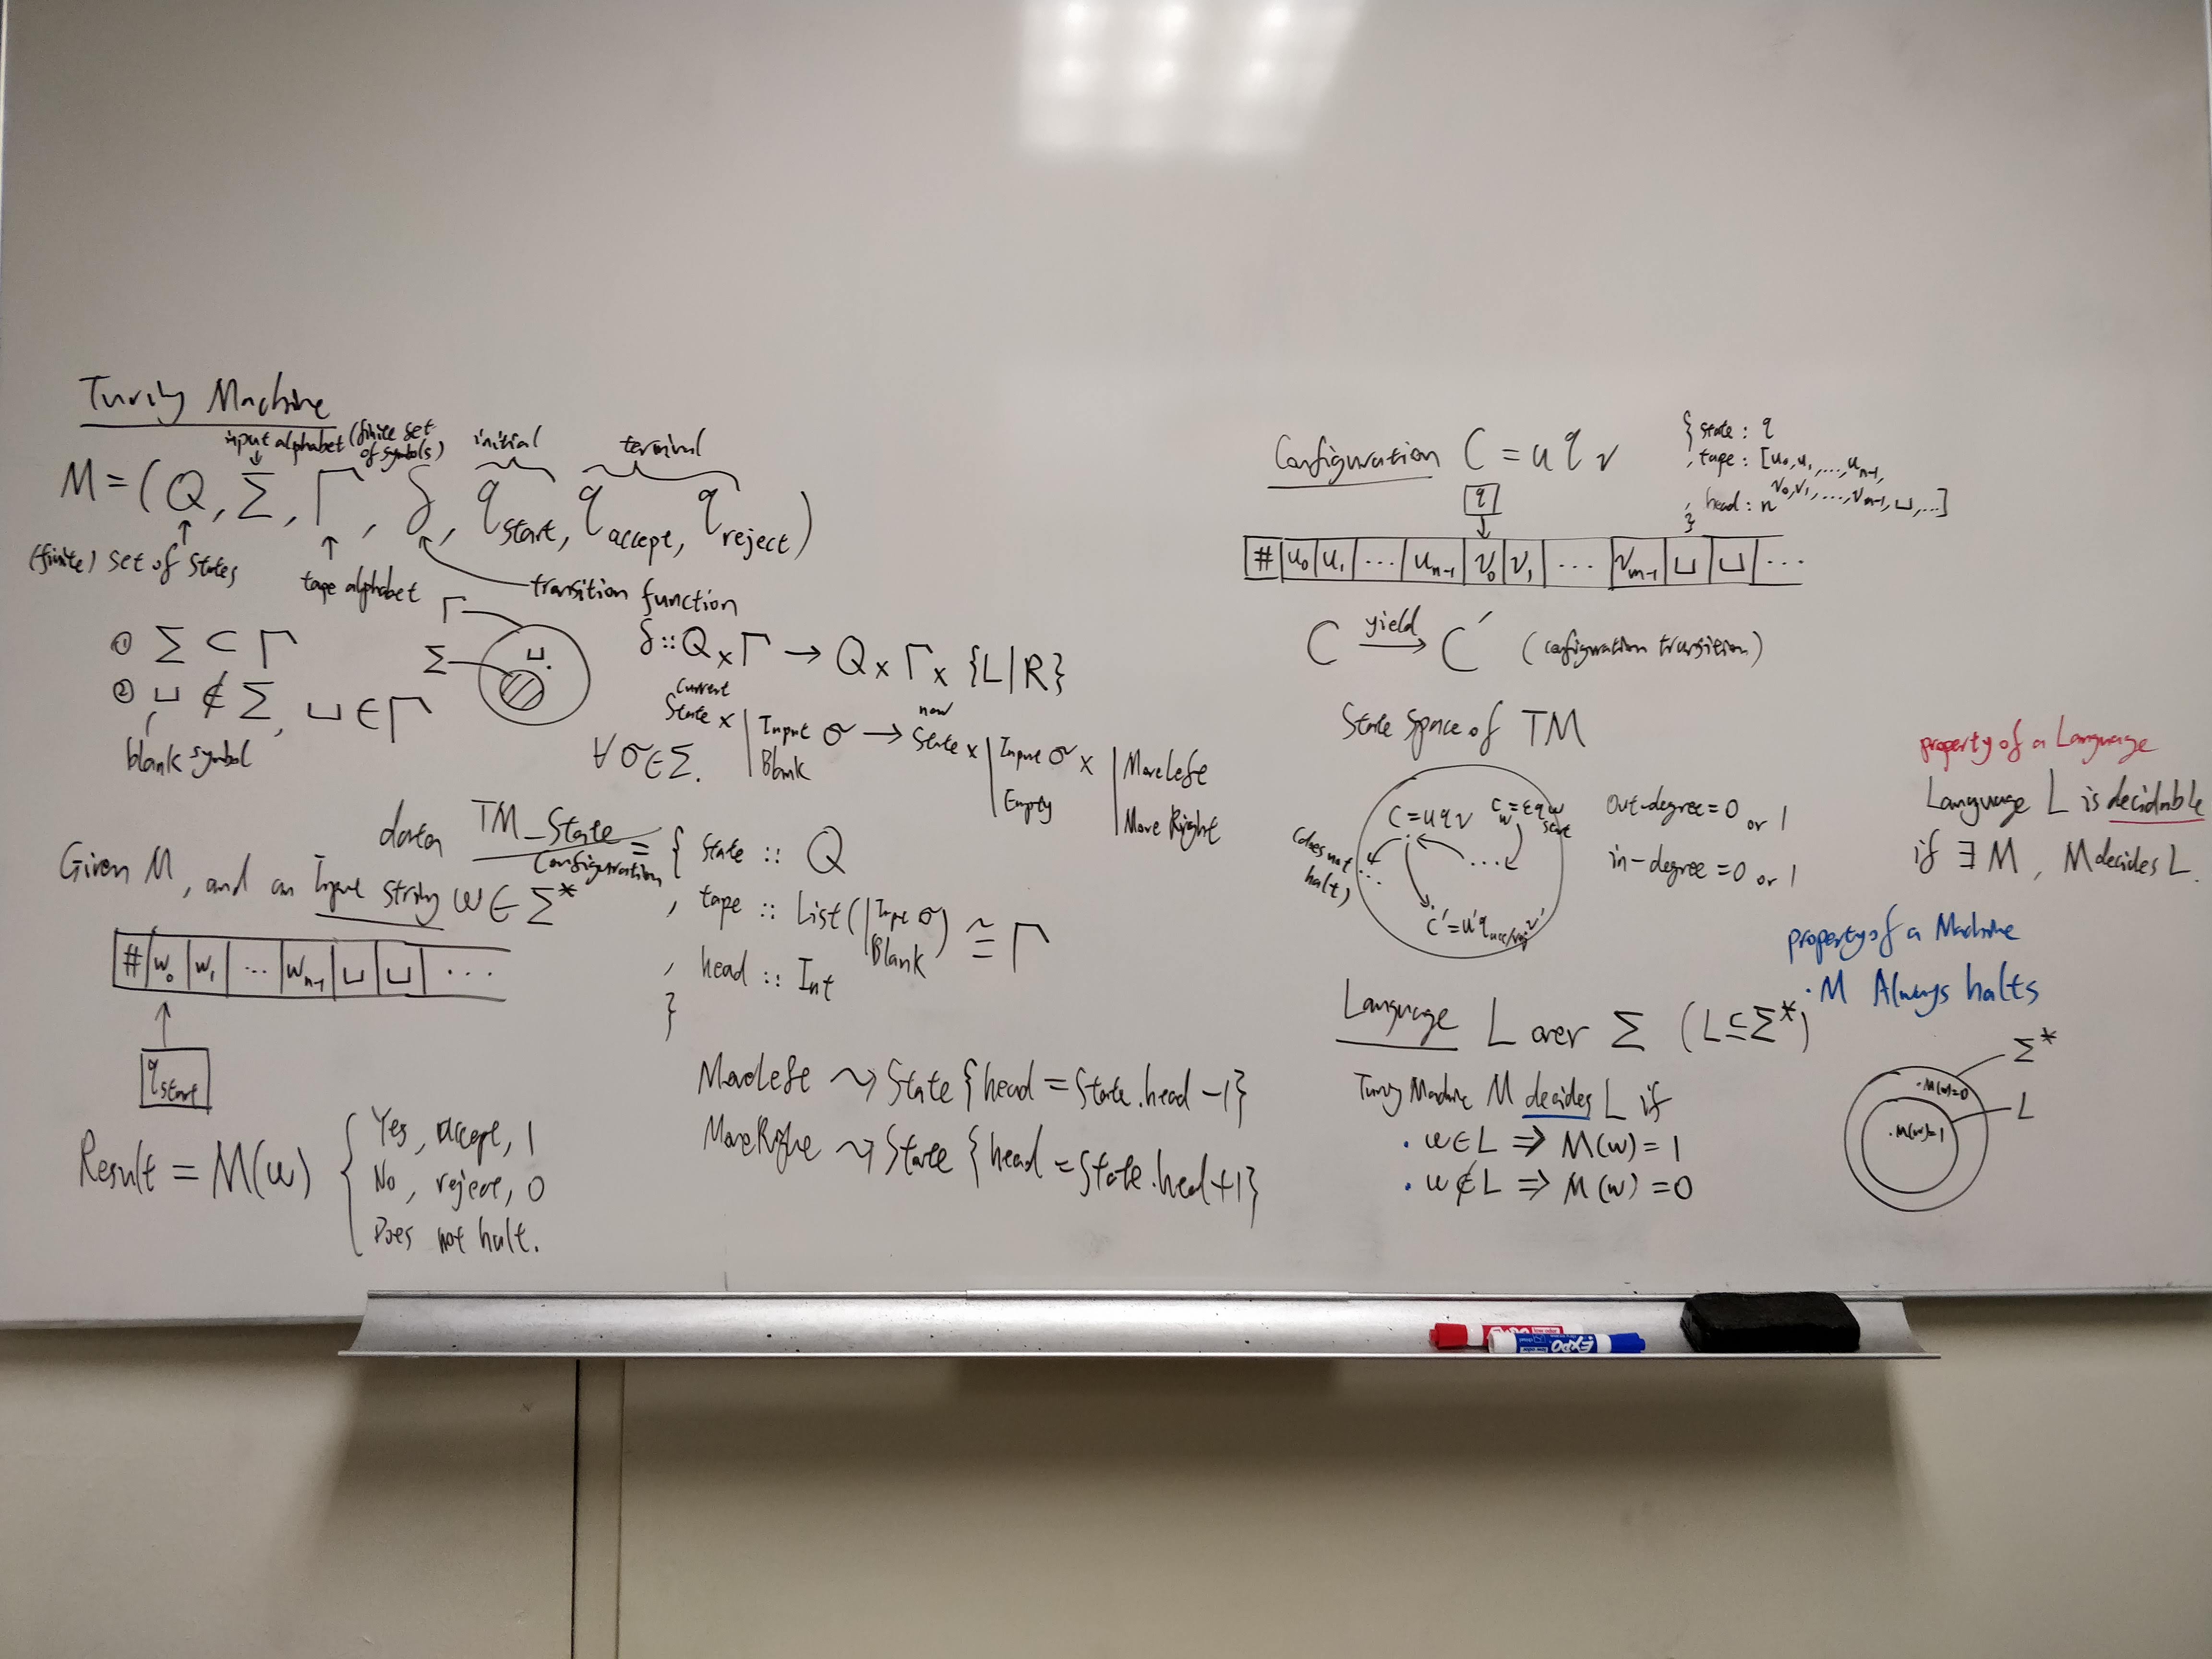 Turing Machine
input alphabet (finite set of symbols)
initial
terminal
M = (Q, Σ, Γ, δ, q start, q accept, q reject)
(finite) set of states
tape alphabet
transition function
① Σ ⊂ Γ
② ⊔ ∉ Σ, ⊔ ∈ Γ
blank symbol
Γ
Σ
⊔
δ :: Q × Γ → Q × Γ × {L|R}
current State × | Input σ → new State × | Input σ × | MoveLeft
Blank
Empty
Move Right
∀σ∈Σ.
data TM_State = { state :: Q
Configuration
, tape :: List(|Input σ |Blank) ≅ Γ
, head :: Int
}
Given M, and an Input string w ∈ Σ*
# w₀ w₁ ... wₙ₋₁ ⊔ ⊔ ...
q start
Result = M(w) {
Yes, accept, 1
No, reject, 0
Does not halt.
MoveLeft ⤳ State {head = State.head -1}
MoveRight ⤳ State {head = State.head +1}
Configuration C = u q v
{ state : q
, tape : [u₀,u₁,...,uₙ₋₁,
v₀,v₁,...,vₘ₋₁,⊔,...]
, head : n
}
q
# u₀ u₁ ... uₙ₋₁ v₀ v₁ ... vₘ₋₁ ⊔ ⊔ ...
C yield → C′ (configuration transition)
State Space of TM
C = uqv
C w = ε q start w
...
(does not halt)
...
C′ = u′q acc/rej v′
out-degree = 0 or 1
in-degree = 0 or 1
property of a Language
Language L is decidable
if ∃ M, M decides L.
property of a Machine
· M Always halts
Language L over Σ (L⊆Σ*)
Turing Machine M decides L if
· w∈L ⇒ M(w) = 1
· w∉L ⇒ M(w) = 0
Σ*
·M(w)=0
L
·M(w)=1
EXPO